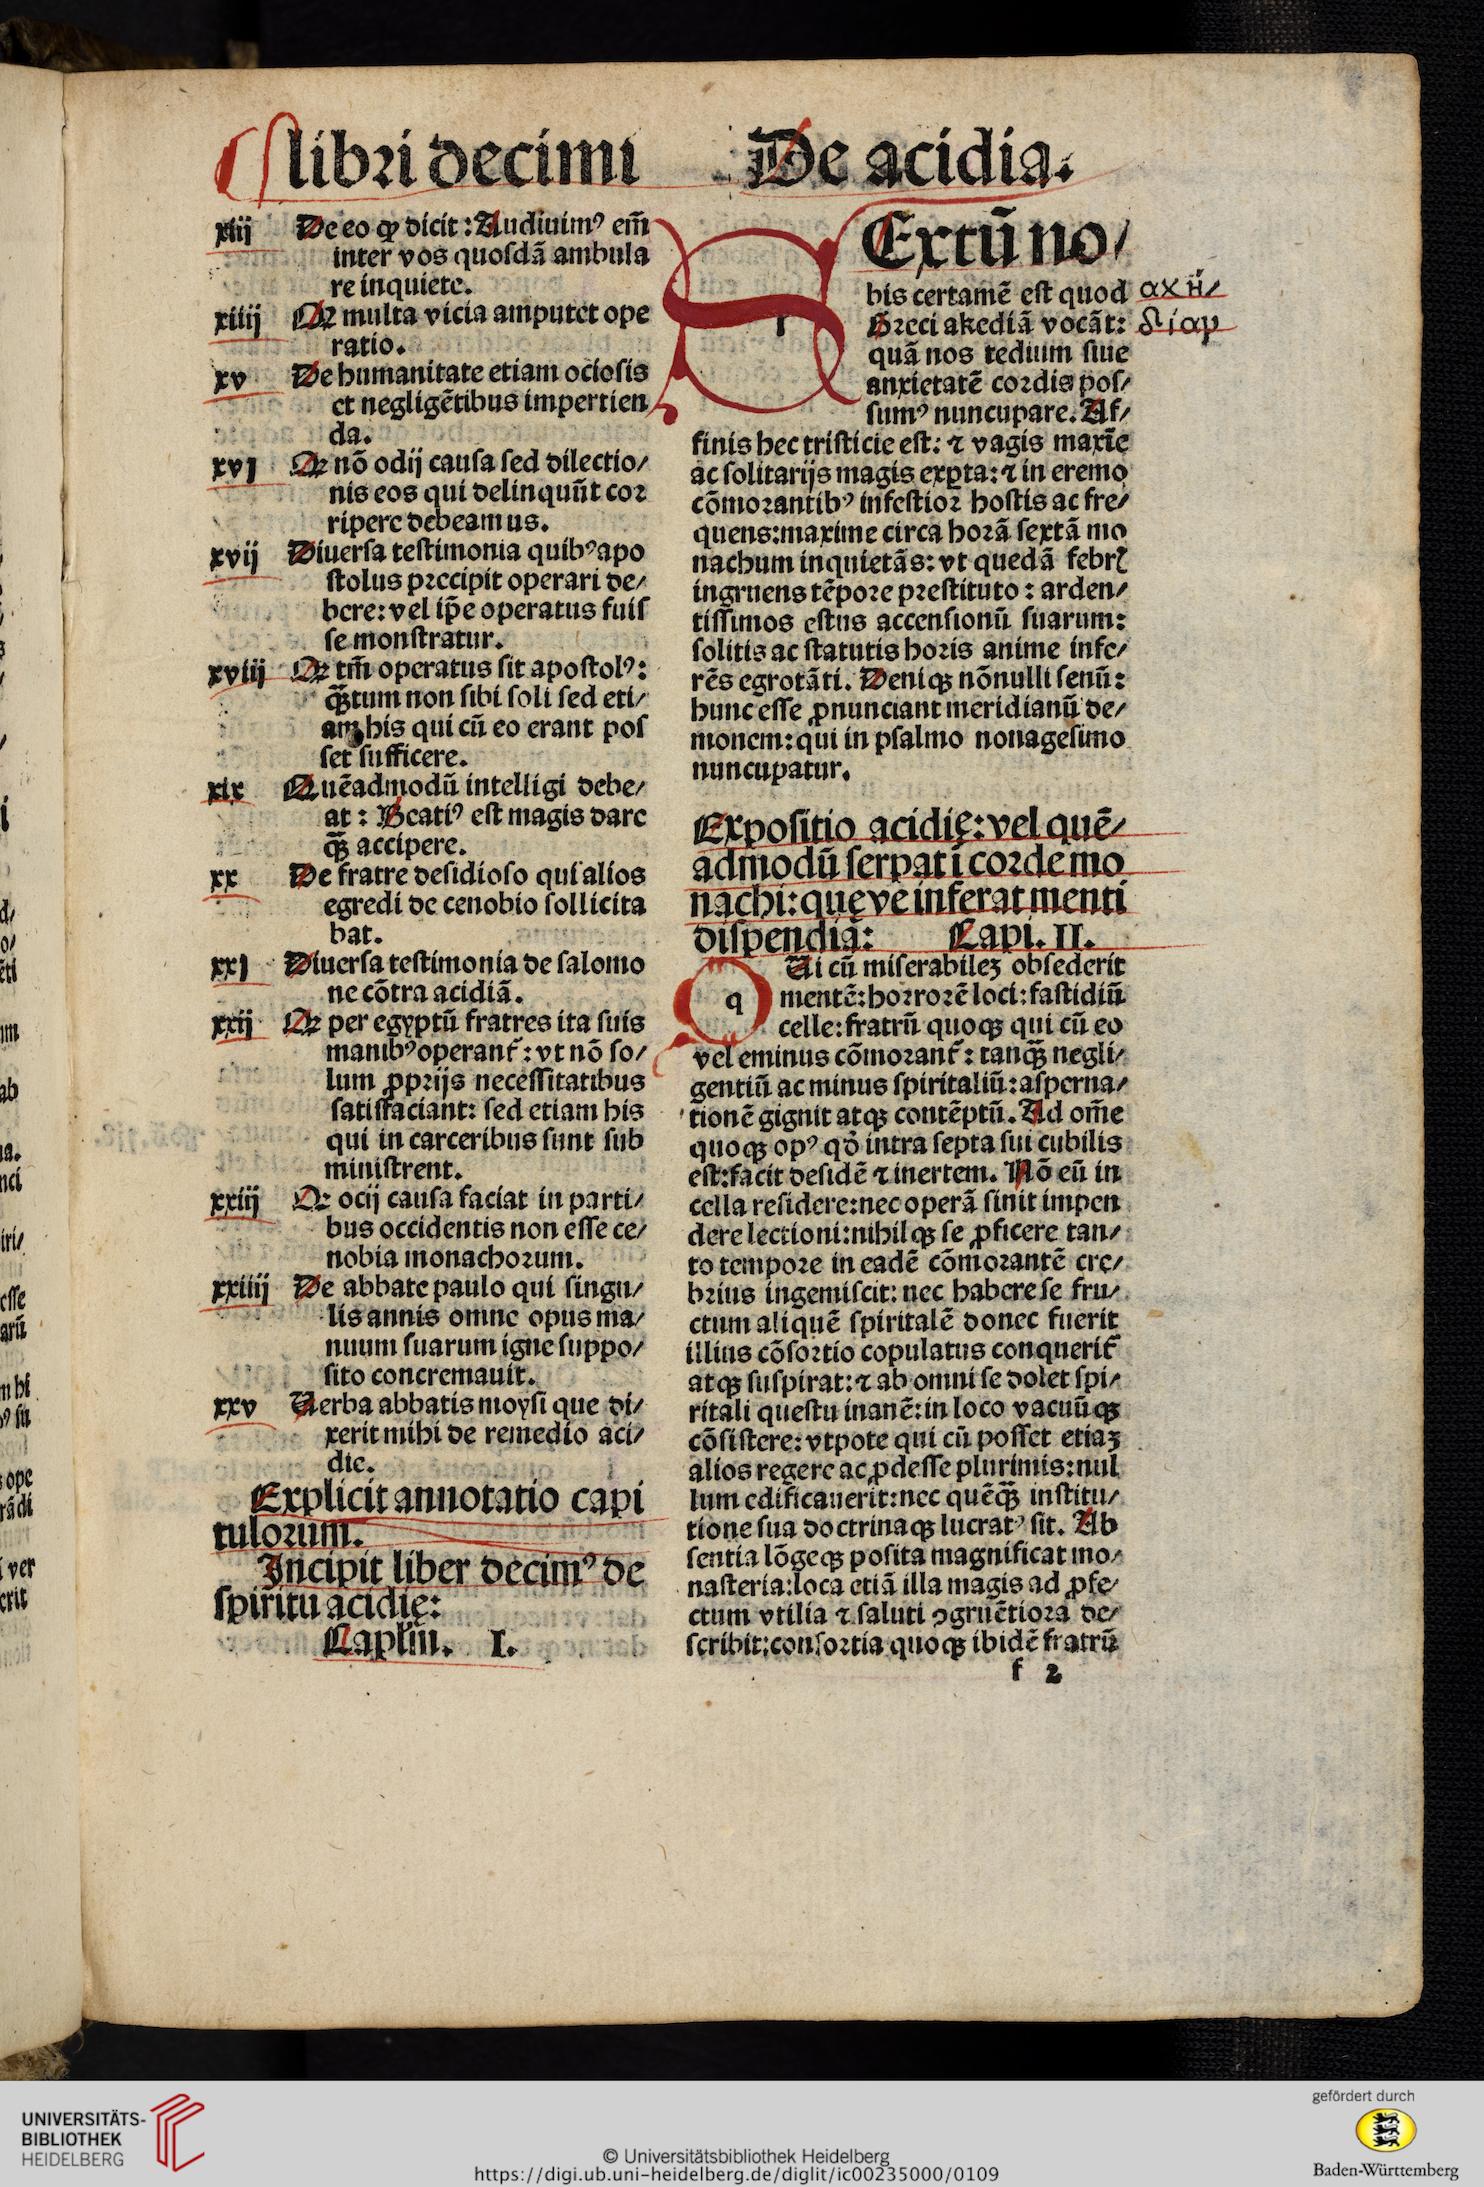 libri decimi De acidia.
xiij De eo ꝙ dicit: Audiuimꝰ em̃
inter vos quosdã ambula
re inquiete.
xiiij Qꝛ multa vicia amputet ope
ratio.
xv De humanitate etiam ociosis
et negligẽtibus impertien
da.
xvj Qꝛ nõ odij causa sed dilectio/
nis eos qui delinquũt cor
ripere debeamus.
xvij Diuersa testimonia quibꝰ apo
stolus precipit operari de/
bere: vel ip̃e operatus fuis
se monstratur.
xviij Qꝛ tm̃ operatus sit apostolꝰ:
ꝙ̃tum non sibi soli sed eti/
am his qui cũ eo erant pos
set sufficere.
xix Quẽadmodũ intelligi debe/
at: Beatiꝰ est magis dare
ꝙ̃ accipere.
xx De fratre desidioso qui alios
egredi de cenobio sollicita
bat.
xxj Diuersa testimonia de salomo
ne cõtra acidiã.
xxij Qꝛ per egyptũ fratres ita suis
manibꝰ operant̃: vt nõ so/
lum ꝓprijs necessitatibus
satisfaciant: sed etiam his
qui in carceribus sunt sub
ministrent.
xxiij Qꝛ ocij causa faciat in parti/
bus occidentis non esse ce/
nobia monachorum.
xxiiij De abbate paulo qui singu/
lis annis omne opus ma/
nuum suarum igne suppo/
sito concremauit.
xxv Verba abbatis moysi que di/
xerit mihi de remedio aci/
die.
Explicit annotatio capi
tulorum.
Incipit liber decimꝰ de
spiritu acidię:
Caplm̃. I.
SExtũ no/
bis certamẽ est quod
Greci akediã vocãt:
quã nos tedium siue
anxietatẽ cordis pos/
sumꝰ nuncupare. Af/
finis hec tristicie est: ⁊ vagis maxĩe
ac solitarijs magis exꝑta: ⁊ in eremo
cõmorantibꝰ infestior hostis ac fre/
quens: maxime circa horã sextã mo
nachum inquietãs: vt quedã febrꝭ
ingruens tẽpore prestituto: arden/
tissimos estus accensionũ suarum:
solitis ac statutis horis anime infe/
rẽs egrotãti. Deniqꝫ nõnulli senũ:
hunc esse ꝓnunciant meridianũ de/
monem: qui in psalmo nonagesimo
nuncupatur.
αχή/
δίαν
Expositio acidię: vel quẽ/
admodũ serpat ĩ corde mo
nachi: quęve inferat menti
dispendia: Capi. II.
qUi cũ miserabileʒ obsederit
mentẽ: horrorẽ loci: fastidiũ
celle: fratrũ quoqꝫ qui cũ eo
vel eminus cõmorant̃: tanꝙ̃ negli/
gentiũ ac minus spiritaliũ: asperna/
tionẽ gignit atqꝫ contẽptũ. Ad om̃e
quoqꝫ opꝰ qð intra septa sui cubilis
est: facit desidẽ ⁊ inertem. Nõ eũ in
cella residere: nec operã sinit impen
dere lectioni: nihilqꝫ se ꝓficere tan/
to tempore in eadẽ cõmorantẽ cre/
brius ingemiscit: nec habere se fru/
ctum aliquẽ spiritalẽ donec fuerit
illius cõsortio copulatus conquerit̃
atqꝫ suspirat: ⁊ ab omni se dolet spi/
ritali questu inanẽ: in loco vacuũqꝫ
cõsistere: vtpote qui cũ posset etiaʒ
alios regere ac ꝓdesse plurimis: nul
lum edificauerit: nec quẽꝙ̃ institu/
tione sua doctrinaqꝫ lucratꝰ sit. Ab
sentia lõgeqꝫ posita magnificat mo/
nasteria: loca etiã illa magis ad ꝓfe/
ctum vtilia ⁊ saluti ꝯgruẽtiora de/
scribit: consortia quoqꝫ ibidẽ fratrũ
f 2
UNIVERSITÄTS-
BIBLIOTHEK
HEIDELBERG
© Universitätsbibliothek Heidelberg
https://digi.ub.uni-heidelberg.de/diglit/ic00235000/0109
gefördert durch
Baden-Württemberg